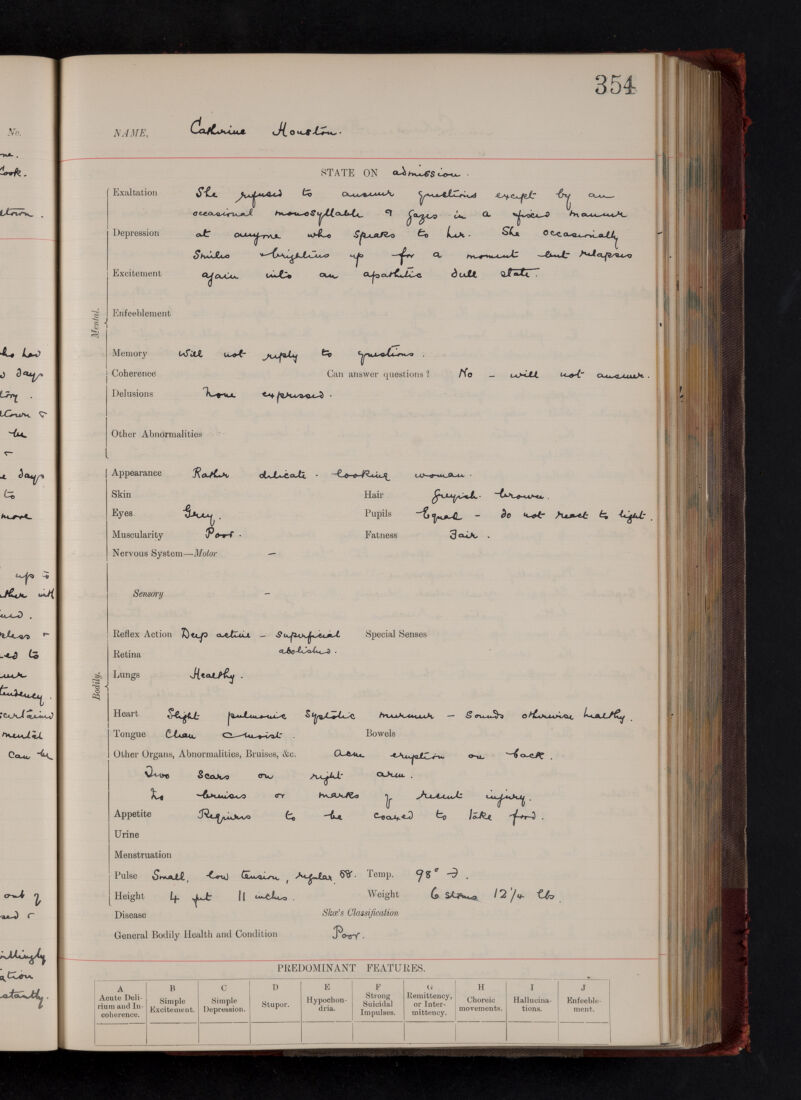 354
No.
NAME, Catherine Houston.
STATE ON admission.
Exaltation She refused to answer questions except by an
occasional monosyllable & gazes in a fixed manner
Depression at anyone who speaks to her. She occasionally
Smiles & brightens up for a moment but relapses
Excitement again into an apathetic dull state.
Mental.
Enfeeblement
Memory Will not reply to questions.
Coherence Can answer questions? No - will not answer.
Delusions None expressed.
Other Abnormalities
Appearance Rather delicate-looking woman.
Skin Hair Greyish-brown.
Eyes Grey. Pupils Equal - do not react to light.
Muscularity Poor. Fatness Fair.
Nervous System—Motor —
Sensory —
Reflex Action Deep active - Superficial Special Senses
abolished.
Retina
Bodily.
Lungs Healthy.
Heart Slight pulmonic Systolic murmur - Sounds otherwise healthy.
Tongue Clean & moist. Bowels
Other Organs, Abnormalities, Bruises, &c. Acne eruption on back.
Two Scars on right arm.
No bruises or marks of recent injury.
Appetite Requires to be coaxed to take food.
Urine
Menstruation
Pulse Small, low tension, regular, 88. Temp. 98°
Height 4 feet 11 inches. Weight 6 Stones 12 1/4 lbs.
Disease Skae's Classification
General Bodily Health and Condition Poor.
PREDOMINANT FEATURES.
A B C D E F G H I J
Acute Delirium and Incoherence. Simple Excitement. Simple Depression. Stupor. Hypochondria. Strong Suicidal Impulses. Remittency, or Intermittency. Choreic movements. Hallucinations. Enfeeblement.